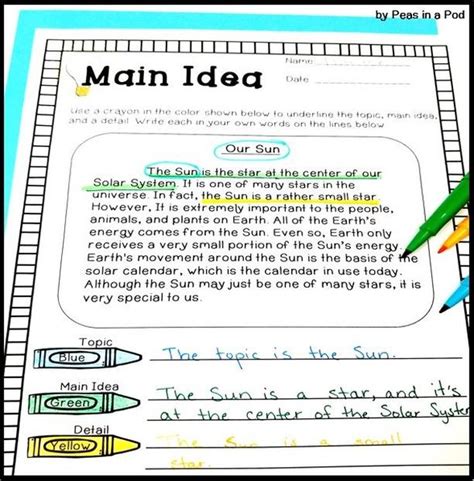 by Peas in a Pod
Name
Main Idea
Date
Use a crayon in the color shown below to underline the topic, main idea,
and a detail. Write each in your own words on the lines below.
Our Sun
The Sun is the star at the center of our
Solar System. It is one of many stars in the
universe. In fact, the Sun is a rather small star.
However, It is extremely important to the people,
animals, and plants on Earth. All of the Earth's
energy comes from the Sun. Even so, Earth only
receives a very small portion of the Sun's energy.
Earth's movement around the Sun is the basis of the
solar calendar, which is the calendar in use today.
Although the Sun may just be one of many stars, it is
very special to us.
Topic
Blue
The topic is the Sun.
Main Idea
Green
The Sun is a star, and it's
at the center of the Solar System
Detail
Yellow
The Sun is a small
star.